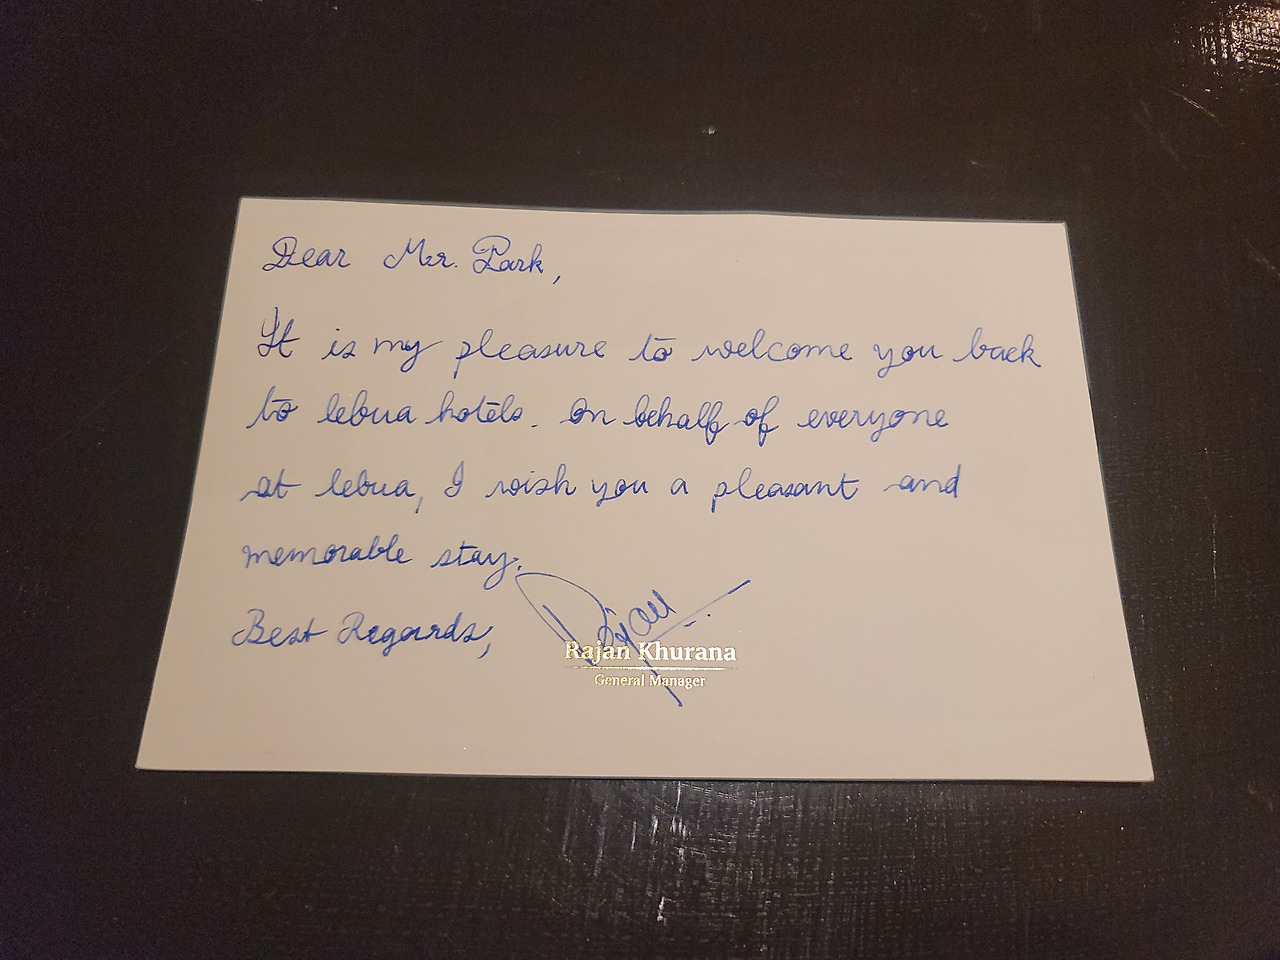 Dear Mr. Park,
It is my pleasure to welcome you back
to lebua hotels. On behalf of everyone
at lebua, I wish you a pleasant and
memorable stay.
Best Regards,
Rajan
Rajan Khurana
General Manager